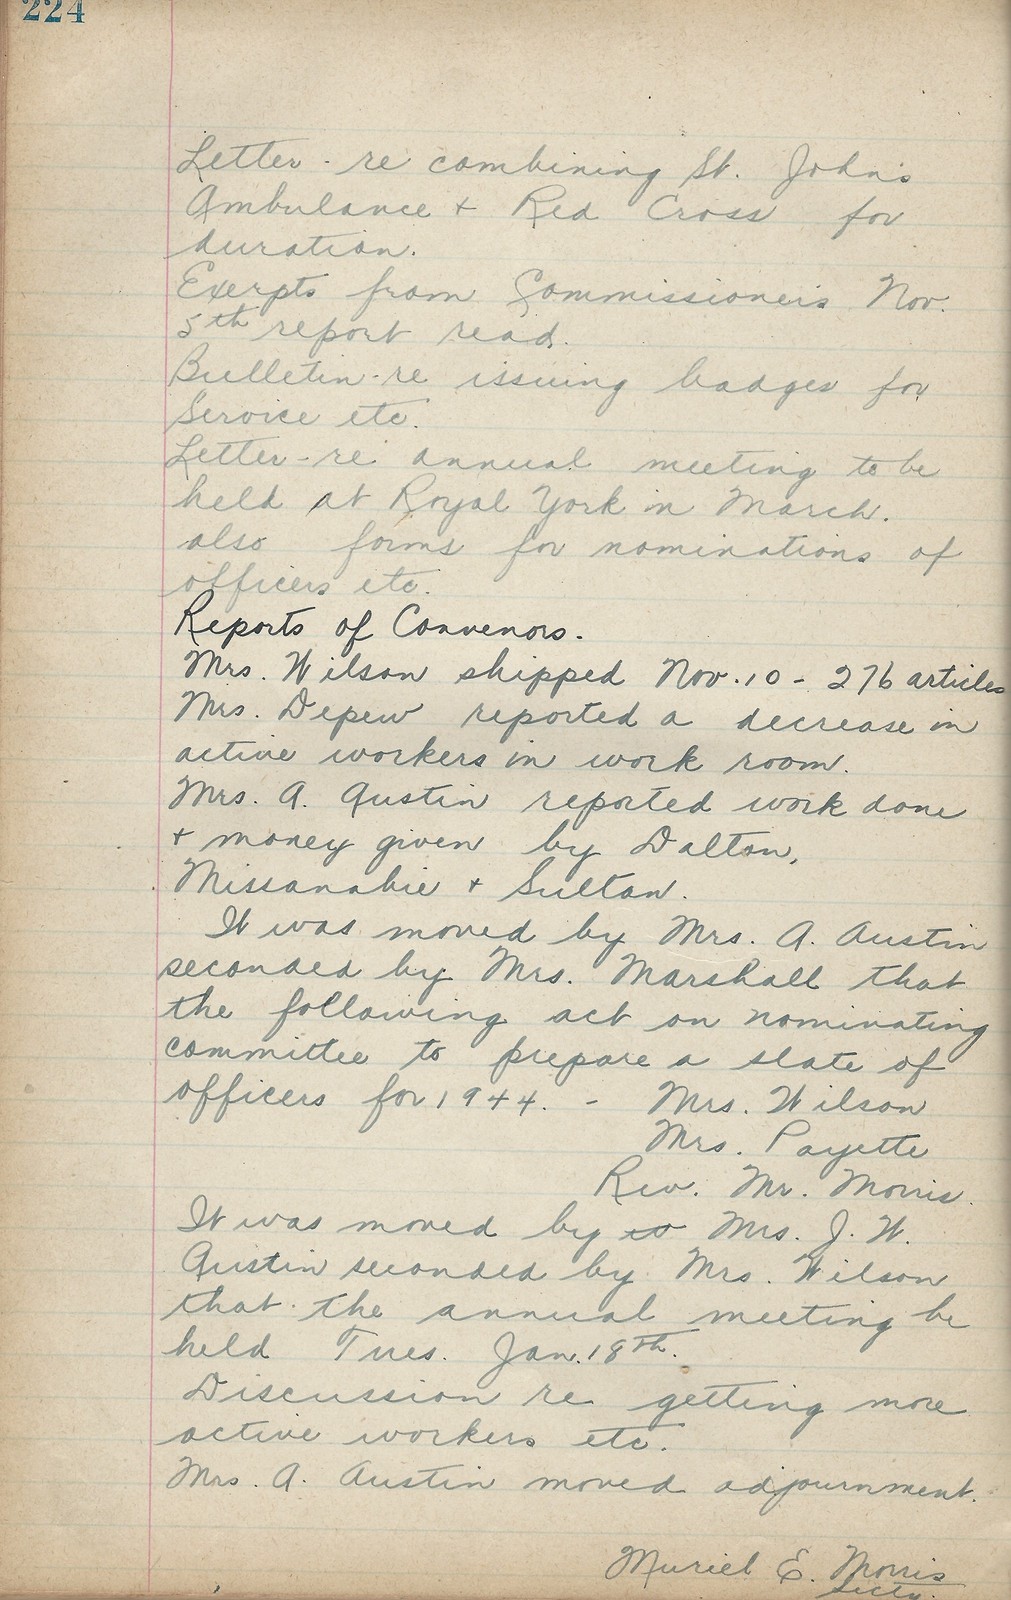 224
Letter - re combining St. John's
Ambulance + Red Cross for
duration.
Exerpts from Commissioner's Nov.
5th report read.
Bulletin - re issuing badges for
Service etc.
Letter - re annual meeting to be
held at Royal York in March.
also forms for nominations of
officers etc.
Reports of Convenors.
Mrs. Wilson shipped Nov. 10 - 276 articles
Mrs. Depew reported a decrease in
active workers in work room.
Mrs. A. Austin reported work done
+ money given by Dalton,
Missanabie + Sultan.
It was moved by Mrs. A. Austin
seconded by Mrs. Marshall that
the following act on nominating
committee to prepare a slate of
officers for 1944. - Mrs. Wilson
Mrs. Payette
Rev. Mr. Morris.
It was moved by Mrs. J. W.
Austin seconded by Mrs. Wilson
that the annual meeting be
held Tues. Jan. 18th.
Discussion re getting more
active workers etc.
Mrs. A. Austin moved adjournment.
Muriel E. Morris
Secty.